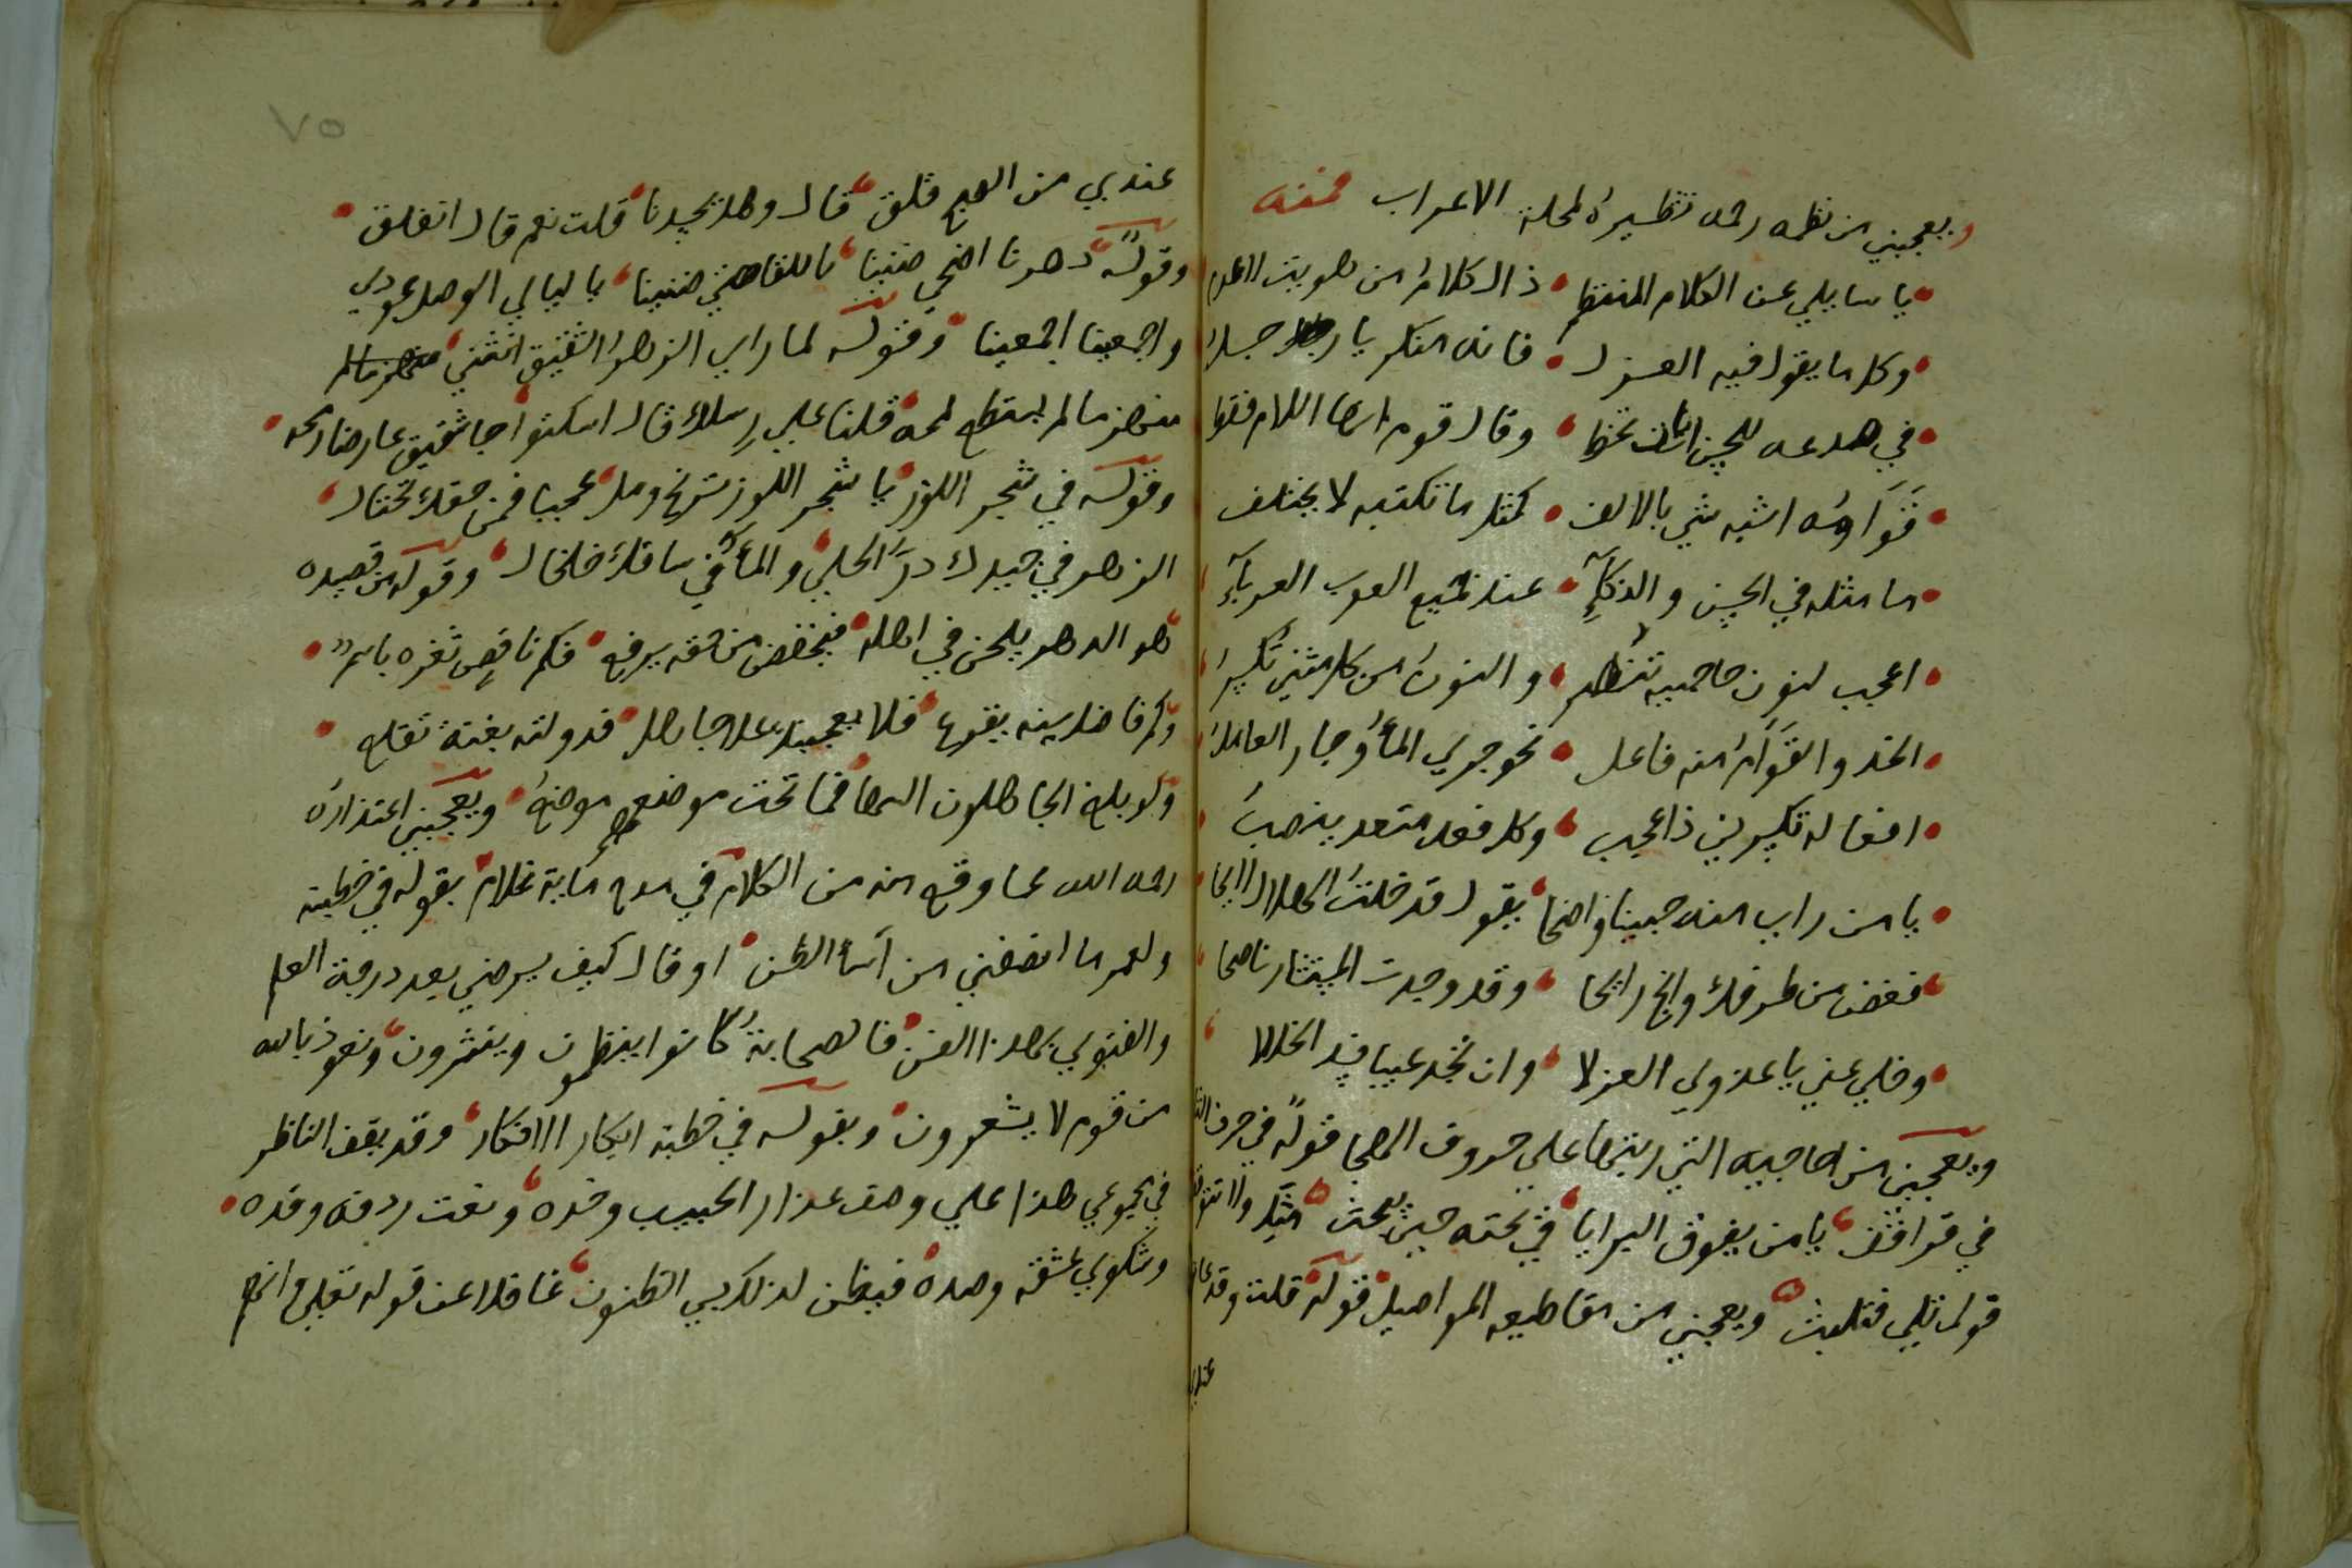 ويعجبني من نظمه رحمه تشطيره لملحة الاعراب فمنه
يا سايلي عن الكلام المنتظم ذاك كلام من هويت
وكلما يقول فيه العزل فانه منكر يا رجل
في صدغه للحسن تخط وقال قوم انها اللام فقط
قوامه اشبه شي بالالف كمثل ما تكتبه لا يختلف
ما مثله في الحسن والذكآء عند جميع العرب العربآء
اعجب لنون حاجبيه تنظر والنون من كل مثني تكسر
الخد والقوام منه فاعل نحو جري المآ وجار العامل
افعاله تكسير لي ذا عجب وكل فعل متعد ينصب
يا من راي منه جبينا واضحا يقول قد خلت الهلال لايحا
فغض من طرفك وانج رابحا وقد وجدت المستشار ناصحا
وخلي عني يا عذولي العزلا وان تجد عيبا فسد الخللا
ويعجبني من احاجيه التي رتبها علي حروف الهجا قوله في حرف الثا
في قرافث يا من يفوق البرايا في بحثه حين يبحث
قول ثلي فثليث ويعجبني من مقاطيعه المواصيل قوله قلت وقد
عندي
٧٥
عندي من الصبح فلق قال وهل يحيدنا قلت نعم قال انفلق
وقوله دهرنا اضحي ضنينا باللقا حتي ضنينا يا ليالي الوصل عودي
واجمعينا اجمعينا وقوله لما راي الزهر الشقيق انثني
منهزما لم يستطع لمحه قلنا علي رسلك قال اسكتوا جا شقيق عارضا رمحه
وقوله في شجر اللوز يا شجر اللوز عجبا فمن حقك تختال
الزهر في جيدك در الحلي والمآ في ساقك خلخال وقوله من قصيده
هو الدهر يلحن في اهله فيخفض من حقه يرفع فكم ناقص ثغره باسم
وكم فاضل سنه يقرع فلا يعجبنك علا جاهل فدولته بغتة تقلع
ولو بلغ الجاهلون السها فما تحت موضعهم موضع ويعجبني اعتذاره
رحمه الله عما وقع منه من الكلام في مدح ماية غلام بقوله في خطبته
ولعمر ما انصفني من اسآ الظن او قال كيف يرضي بعد درجة العلم
والفتوي بهذا الفن فالصحابة كانوا ينظمون وينثرون ونعوذ بالله
من قوم لا يشعرون وبقوله في خطبة ابكار الافكار وقد يقف الناظر
في مجموعي هذا علي وصف عذار الحبيب وخده ونعت ردفه وقده
وشكوي عشقه وصده فيظن لذلك بي الظنون غافلا عن قوله تعلي انهم